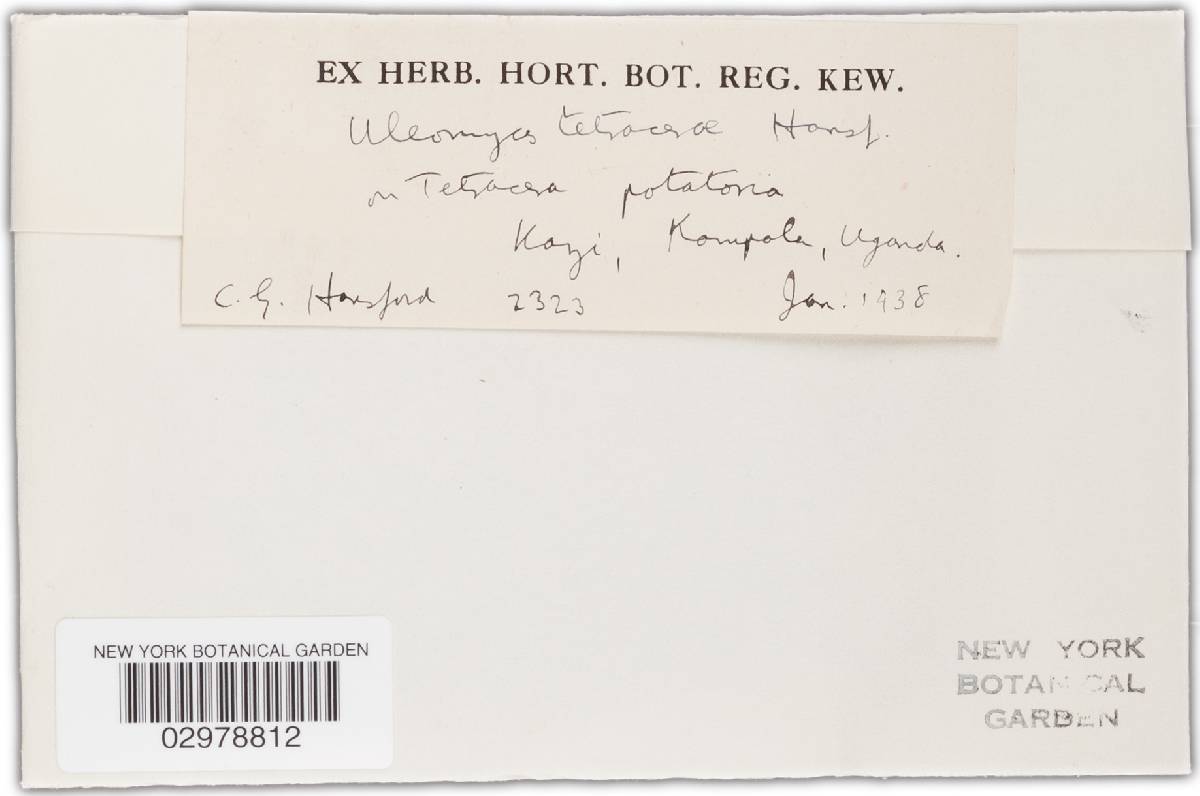 EX HERB. HORT. BOT. REG. KEW.
Uleomyces tetracerae Hansf.
on Tetracera potatoria
Kazi, Kampala, Uganda.
C. G. Hansford 2323 Jan. 1938
NEW YORK BOTANICAL GARDEN
02978812
NEW YORK
BOTANICAL
GARDEN